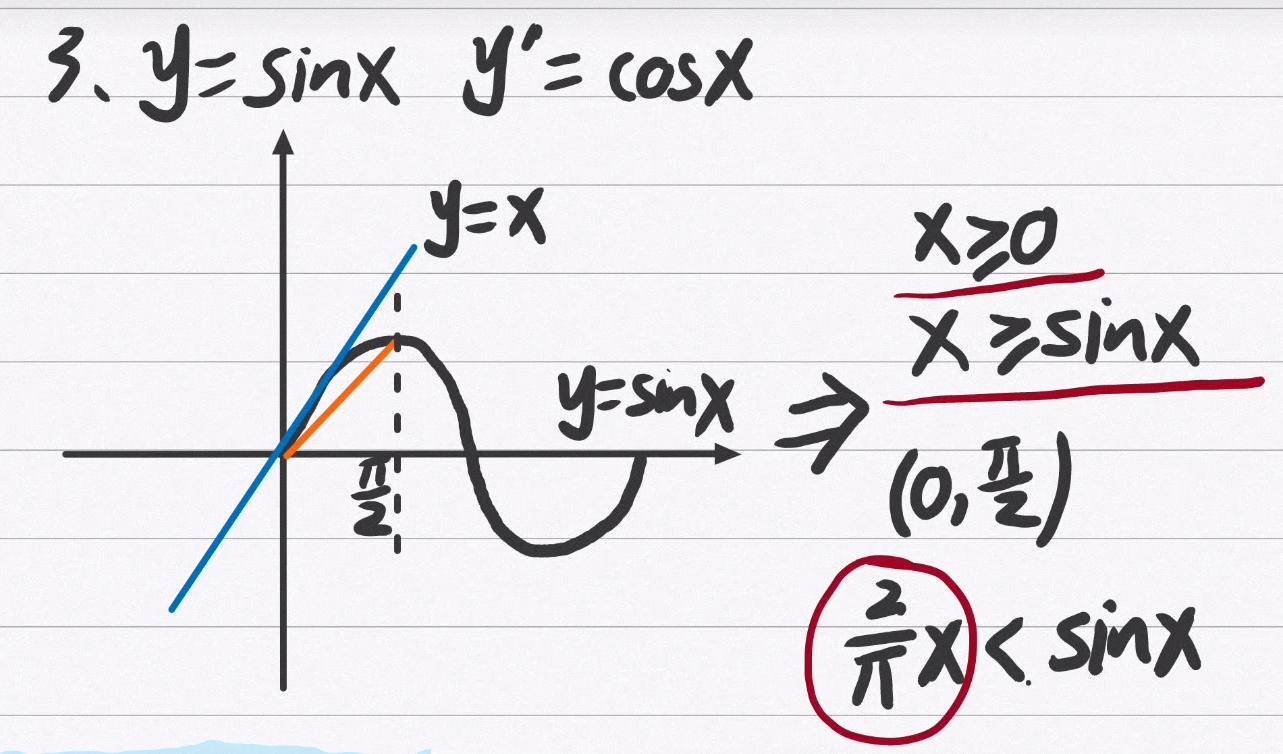 3、y=sinx y'=cosx
y=x
y=sinx
π/2
⇒
x⩾0
x⩾sinx
(0,π/2)
2/π x<sinx